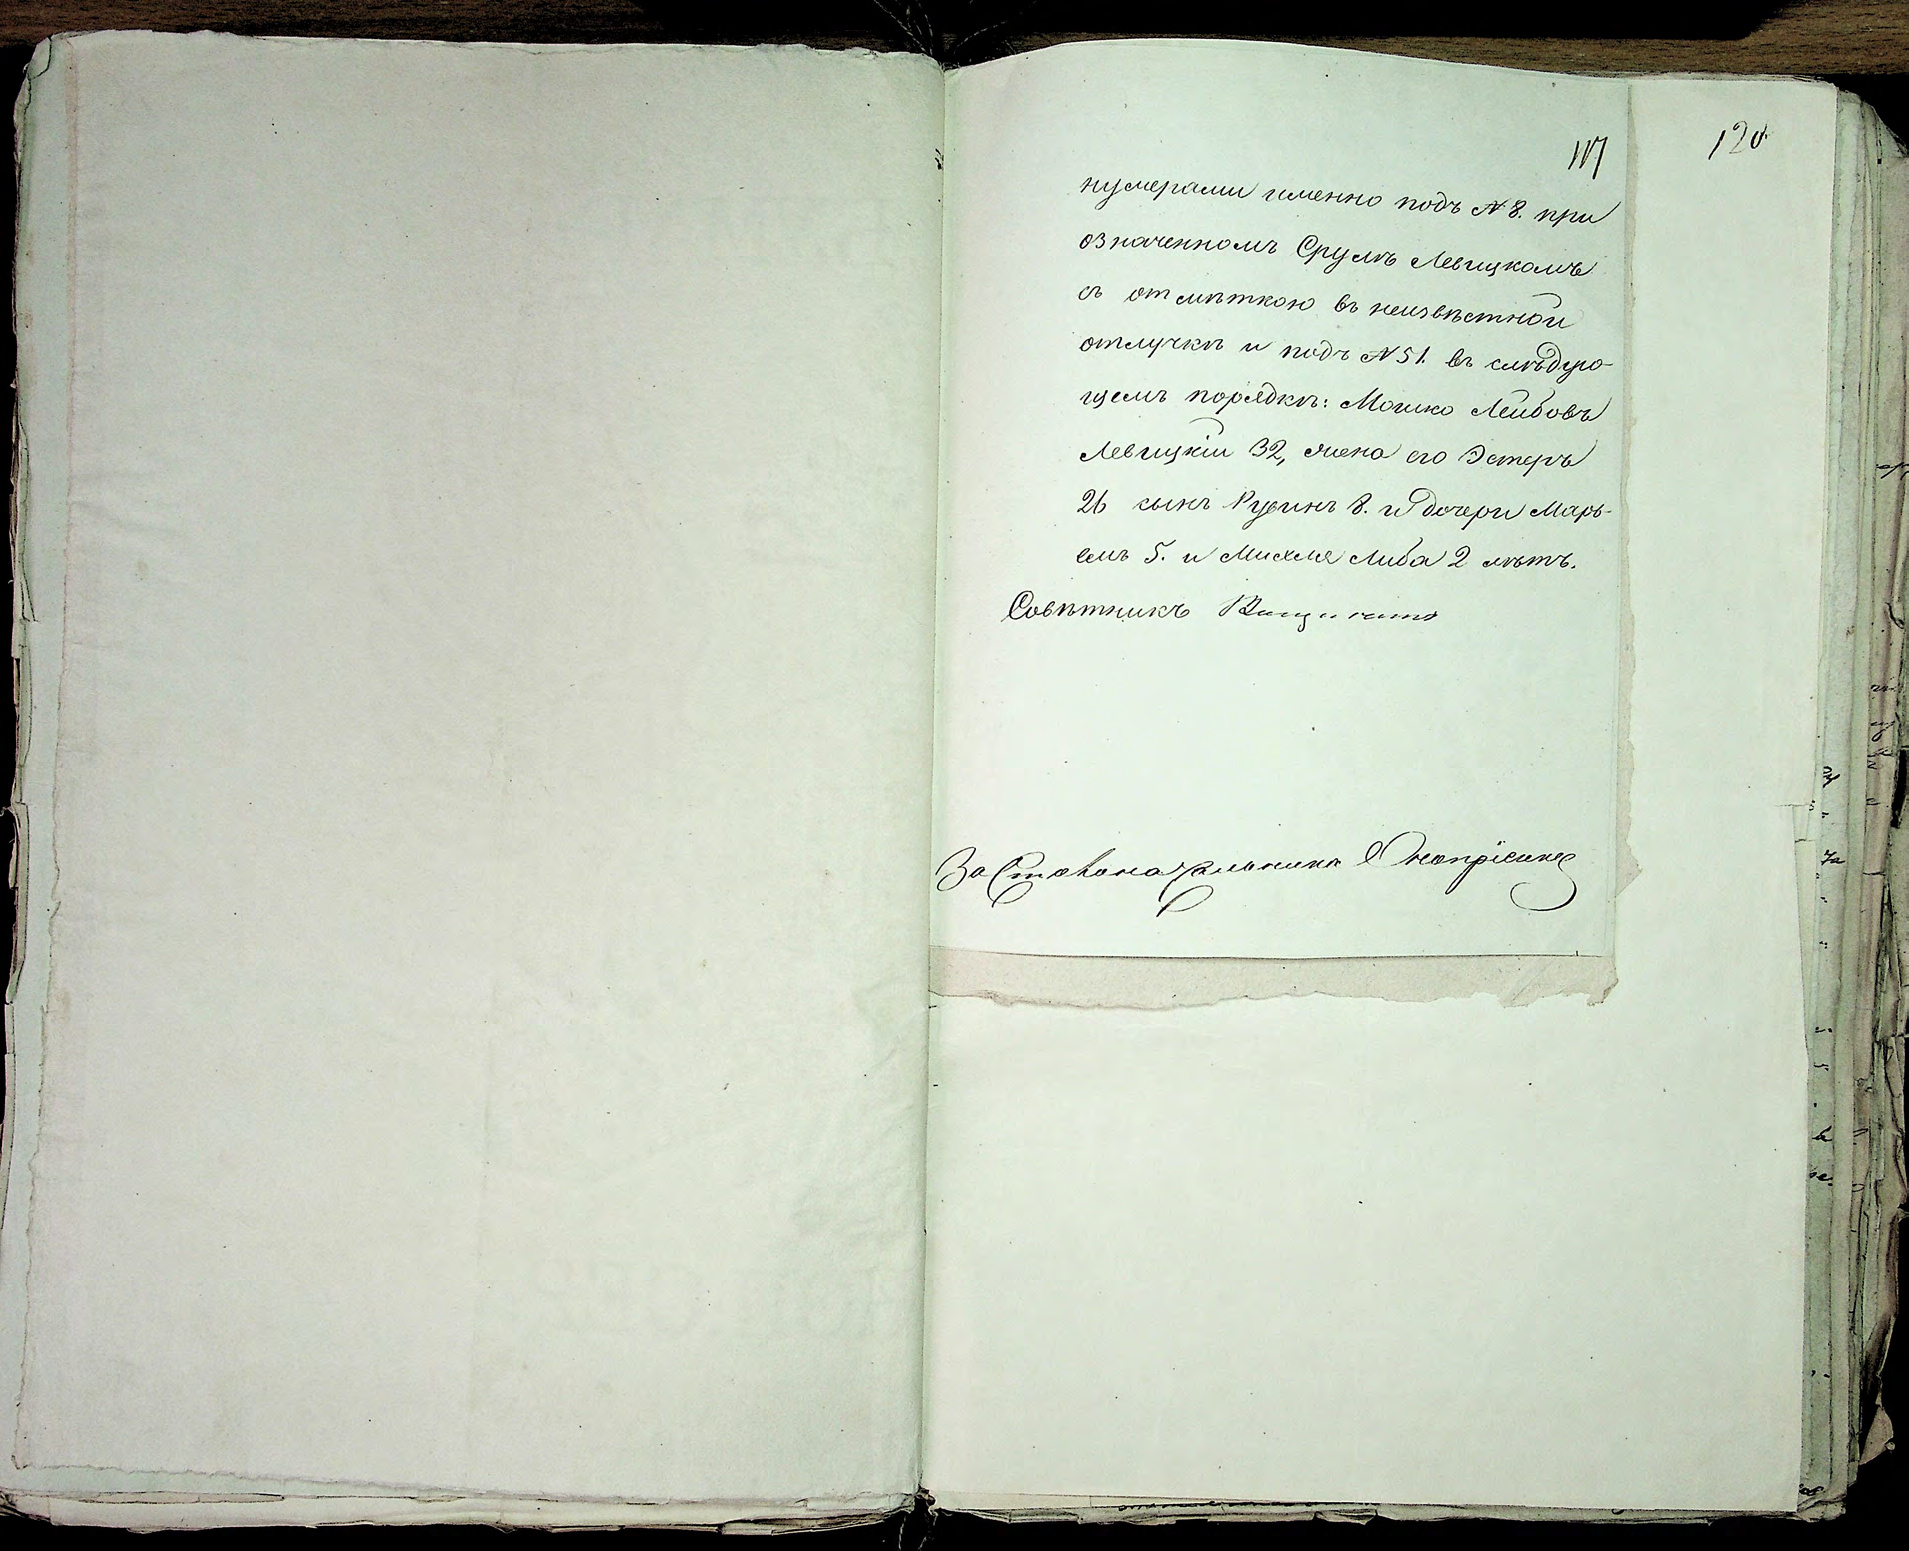 117
120
нумерами именно подъ № 8. при
означенномъ Срулѣ Левицкомъ
съ отмѣткою въ неизвѣстной
отлучкѣ и подъ № 51. въ слѣдую-
щемъ порядкѣ: Мошко Лейбовъ
Левицкій 32, жена его Эстеръ
26 сынъ Рувинъ 8. и дочери Марь-
емъ 5. и Михля Либа 2 лѣтъ.
Совѣтникъ
За Столоначальника